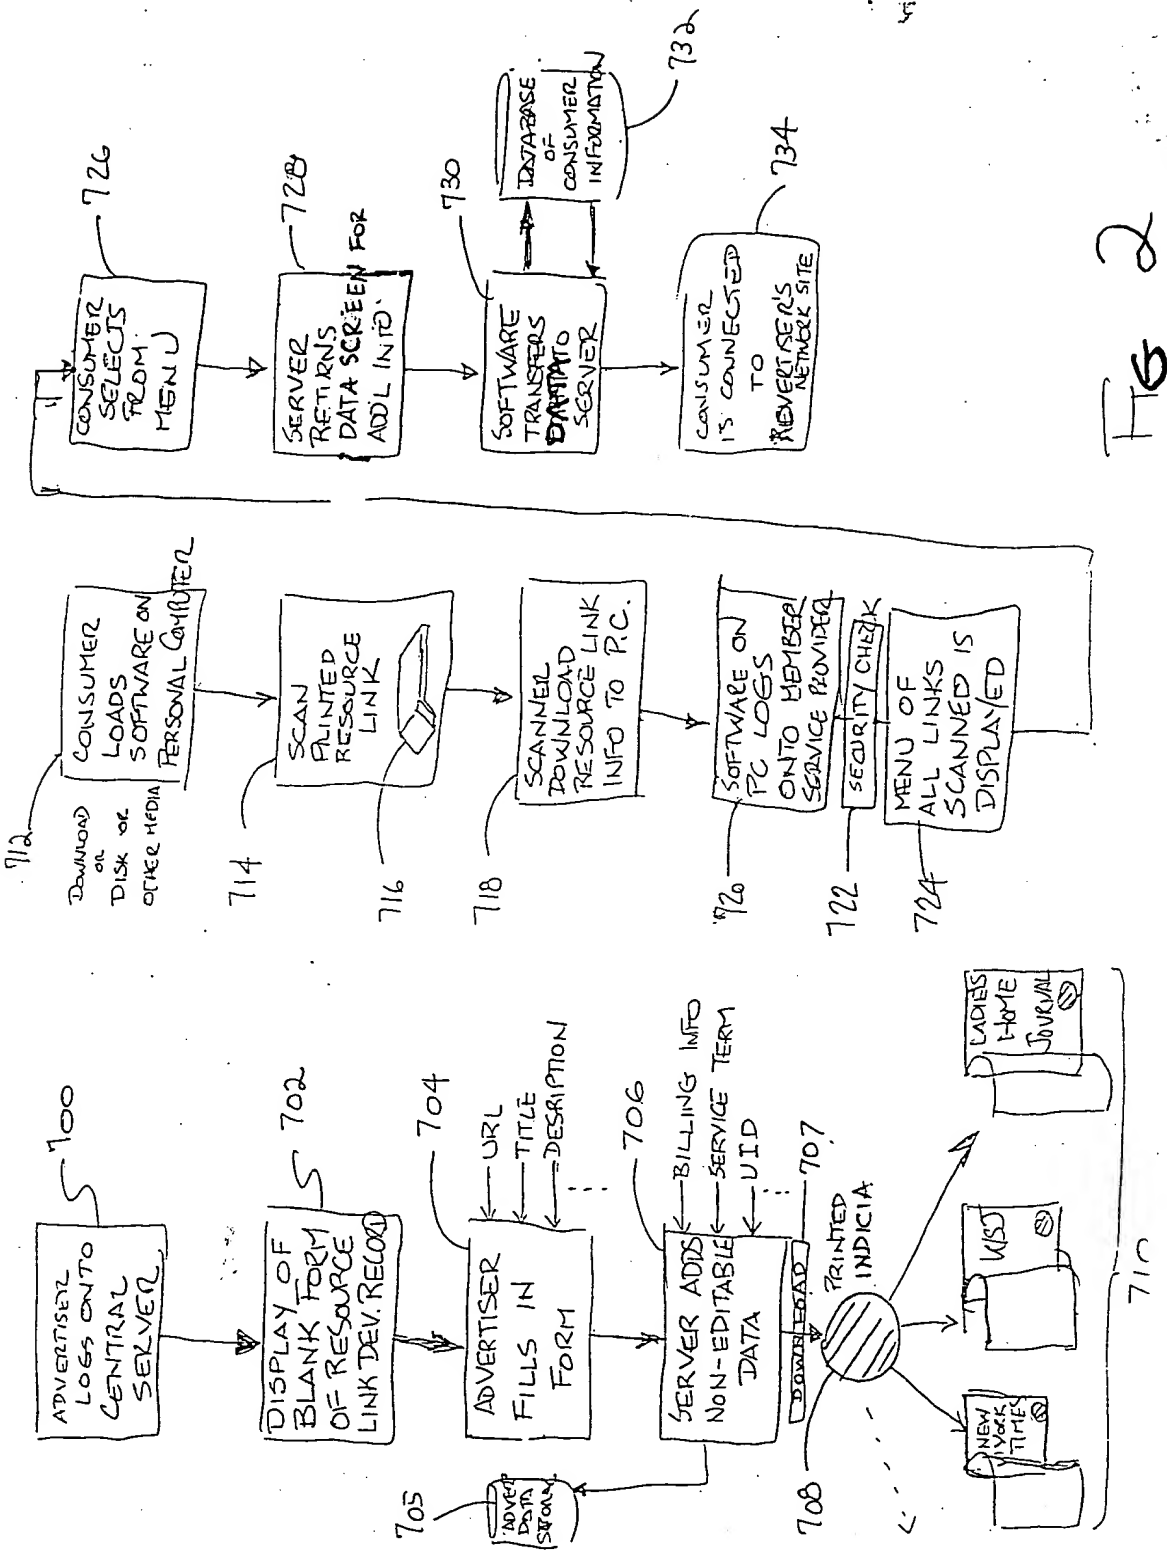 700
ADVERTISER
LOGS ONTO
CENTRAL
SERVER
702
DISPLAY OF
BLANK FORM
OF RESOURCE
LINK DEV. RECORD
704
ADVERTISER
FILLS IN
FORM
URL
TITLE
DESRIPTION
705
ADVER
DATA
706
SERVER ADDS
NON-EDITABLE
DATA
BILLING INFO
SERVICE TERM
UID
DOWNLOAD
707
708
PRINTED
INDICIA
NEW
YORK
TIMES
WSJ
LADIES
HOME
JOURNAL
710
712
DOWNLOAD
OR
DISK OR
OTHER MEDIA
CONSUMER
LOADS
SOFTWARE ON
PERSONAL COMPUTER
714
SCAN
PRINTED
RESOURCE
LINK
716
718
SCANNER
DOWNLOAD
RESOURCE LINK
INFO TO P.C.
720
SOFTWARE ON
PC LOGS
ONTO MEMBER
SERVICE PROVIDER
722
SECURITY CHECK
724
MENU OF
ALL LINKS
SCANNED IS
DISPLAYED
726
CONSUMER
SELECTS
FROM
MENU
728
SERVER
RETURNS
DATA SCREEN FOR
ADDL INFO
730
SOFTWARE
TRANSFERS
DATA TO
SERVER
DATABASE
OF
CONSUMER
INFORMATION
732
CONSUMER
IS CONNECTED
TO
NETWORK SITE
734
FIG 2